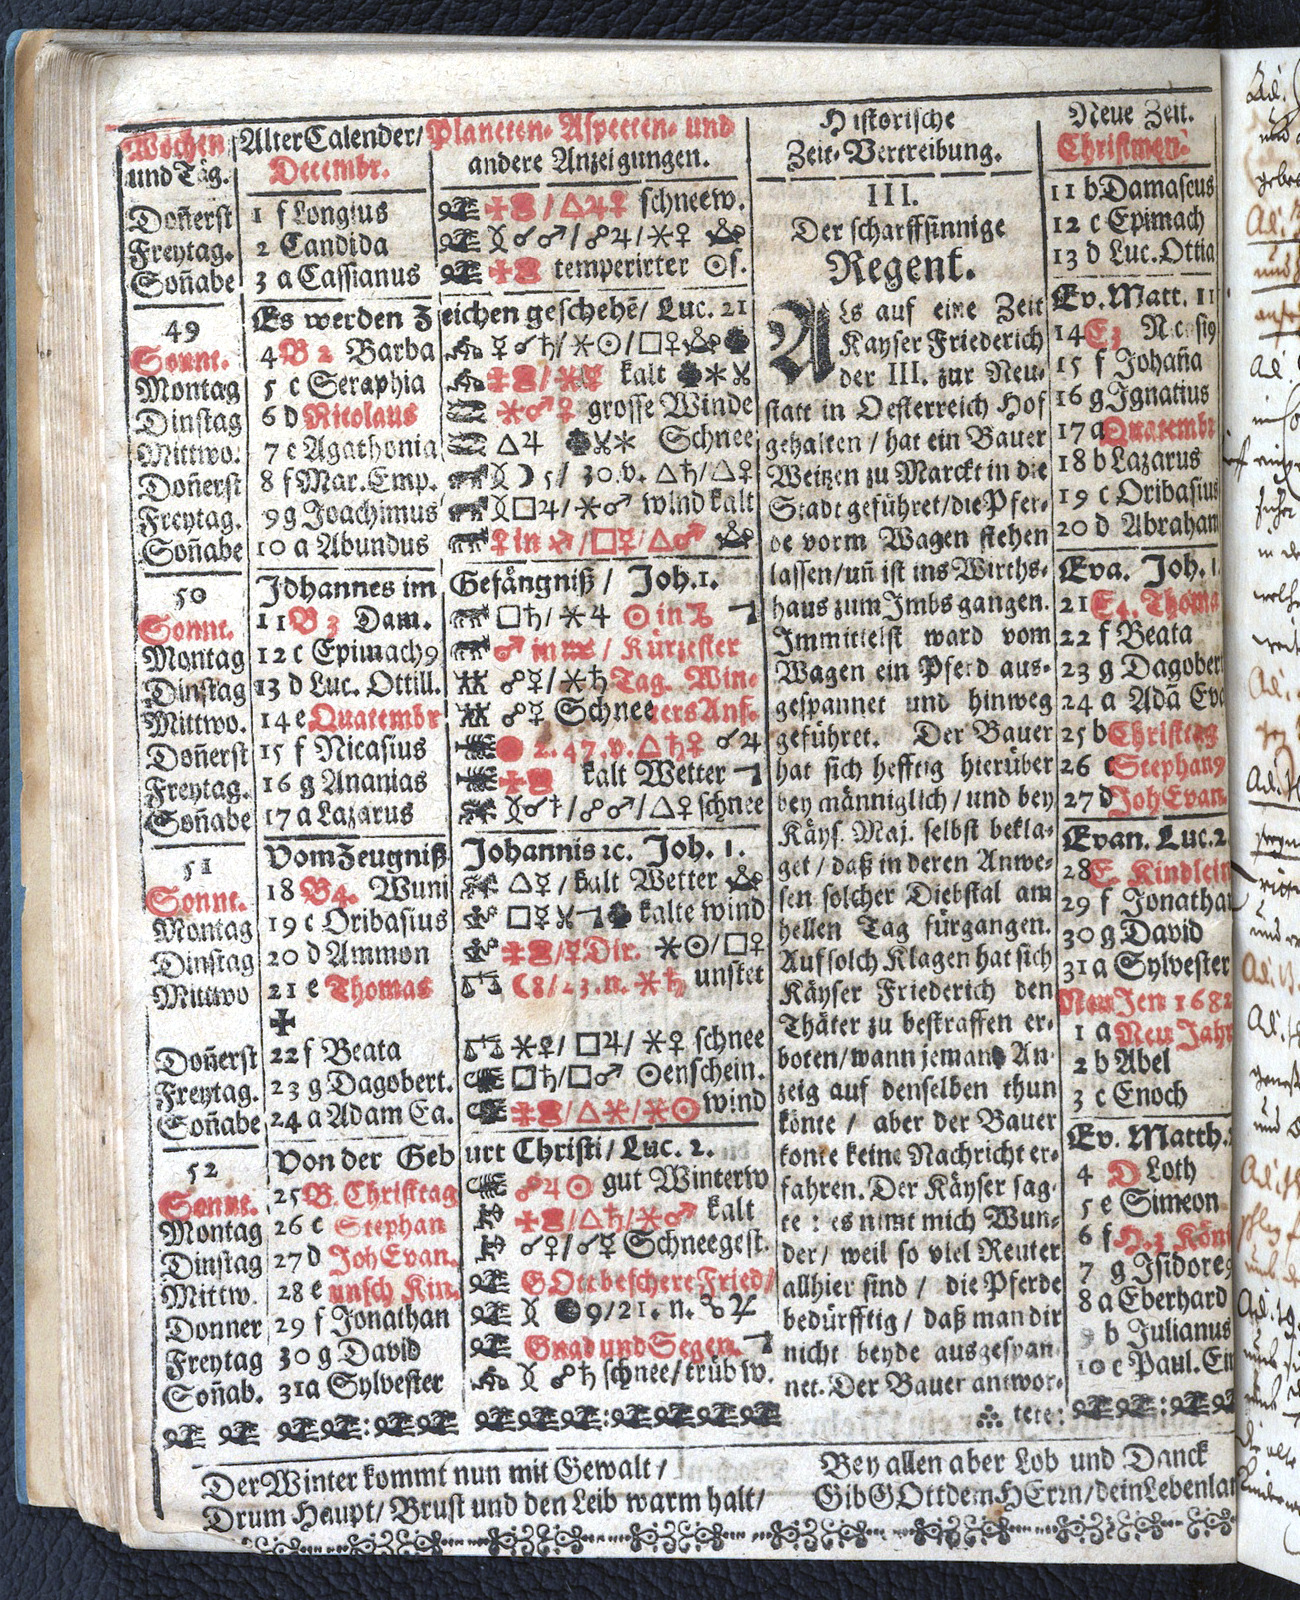 Wochen und Täg.
Alter Calender/ Decembr.
Planeten- Aspecten- und andere Anzeigungen.
Historische Zeit-Vertreibung.
Neue Zeit. Christmon:
Doñerst 1 f Longius △♃♀ schneew.
Freytag. 2 Candida ☌♂/☍♃/⚹♀
Soñabe 3 a Cassianus temperirter ☉s.
49 Es werden Zeichen geschehē/ Luc. 21
Sonnt. 4 B 2 Barba ☿☌♄/⚹☉/□♀
Montag 5 c Seraphia kalt
Dinstag 6 d Nicolaus ⚹♂♀ grosse Winde
Mittwo. 7 e Agathonia △♃ Schnee
Doñerst 8 f Mar. Emp. ☽ 5/ 30.v. △♄/△♀
Freytag. 9 g Joachimus □♃/⚹♂ wind kalt
Soñabe 10 a Abundus ♀ in ♐/□☿/△♂
50 Johannes im Gefängniß/ Joh. 1.
Sonnt. 11 B 3 Dam. □♄/⚹♃ ☉ in ♑
Montag 12 c Epimach9 ♂ in ♒/ Kürzester
Dinstag 13 d Luc. Ottill. ☍☿/⚹♄ Tag. Win-
Mittwo. 14 e Quatembr ☍☿ Schnee ters Anf.
Doñerst 15 f Nicasius 2.47.v. △♄♀ ☌♃
Freytag. 16 g Ananias kalt Wetter
Soñabe 17 a Lazarus ☍♂/△♀ schnee
51 Vom Zeugniß Johannis ꝛc. Joh. 1.
Sonnt. 18 B 4. Wuni △☿/ kalt Wetter
Montag 19 c Oribasius □☿ kalte wind
Dinstag 20 d Ammon ☿ Dir. ⚹☉/□♀
Mittwo 21 e Thomas ☾ 8/23.n. ⚹♄ unstet
✠
Doñerst 22 f Beata □♃/ ⚹♀ schnee
Freytag. 23 g Dagobert. □♄/□♂ ☉enschein.
Soñabe 24 a Adam Ea. wind
52 Von der Geburt Christi/ Luc. 2.
Sonnt. 25 B. Christtag ☍♃☉ gut Winterw
Montag 26 c Stephan △♄/⚹♂ kalt
Dinstag 27 d Joh Evan. ☌♀/☌☿ Schneegest.
Mittw. 28 e unsch Kin. GOtt beschere Fried/
Donner 29 f Jonathan 9/21. n.
Freytag 30 g David Gnad und Segen.
Soñab. 31 a Sylvester ☍♄ schnee/ trüb w.
III.
Der scharffsinnige
Regent.
Als auf eine Zeit
Kayser Friederich
der III. zur Neu-
statt in Oesterreich Hof
gehalten/ hat ein Bauer
Weitzen zu Marckt in die
Stadt geführet/ die Pfer-
de vorm Wagen stehen
lassen/ uñ ist ins Wirths-
haus zum Jmbs gangen.
Immittelst ward vom
Wagen ein Pferd aus-
gespannet und hinweg
geführet. Der Bauer
hat sich hefftig hierüber
bey männiglich/ und bey
Käys. Maj. selbst bekla-
get/ daß in deren Anwe-
sen solcher Diebstal am
hellen Tag fürgangen.
Auf solch Klagen hat sich
Käyser Friederich den
Thäter zu bestraffen er-
boten/ wann jemand An-
zeig auf denselben thun
könte/ aber der Bauer
konte keine Nachricht er-
fahren. Der Käyser sag-
te: es nimt mich Wun-
der/ weil so viel Reuter
allhier sind/ die Pferde
bedürfftig/ daß man dir
nicht beyde ausgespan-
net. Der Bauer antwor-
tete:
11 b Damascus
12 c Epimach
13 d Luc. Ottia
Ev. Matt. 11
14 E3 Nicasi9
15 f Johaña
16 g Ignatius
17 a Quatembr
18 b Lazarus
19 c Oribasius
20 d Abraham
Eva. Joh. 1.
21 E 4. Thoma
22 f Beata
23 g Dagobert
24 a Adā Eva
25 b Christtag
26 c Stephan9
27 d Joh Evan.
Evan. Luc. 2.
28 E. Kindlein
29 f Jonathan
30 g David
31 a Sylvester
Neu Jen 1682
1 a Neu Jahr
2 b Abel
3 c Enoch
Ev. Matth.
4 D Loth
5 e Simeon
6 f H. 3 Köni
7 g Isidore9
8 a Eberhard
9 b Julianus
10 c Paul. Ein
Der Winter kommt nun mit Gewalt/
Drum Haupt/ Brust und den Leib warm halt/
Bey allen aber Lob und Danck
Gib GOtt dem HErrn/ dein Lebenlan